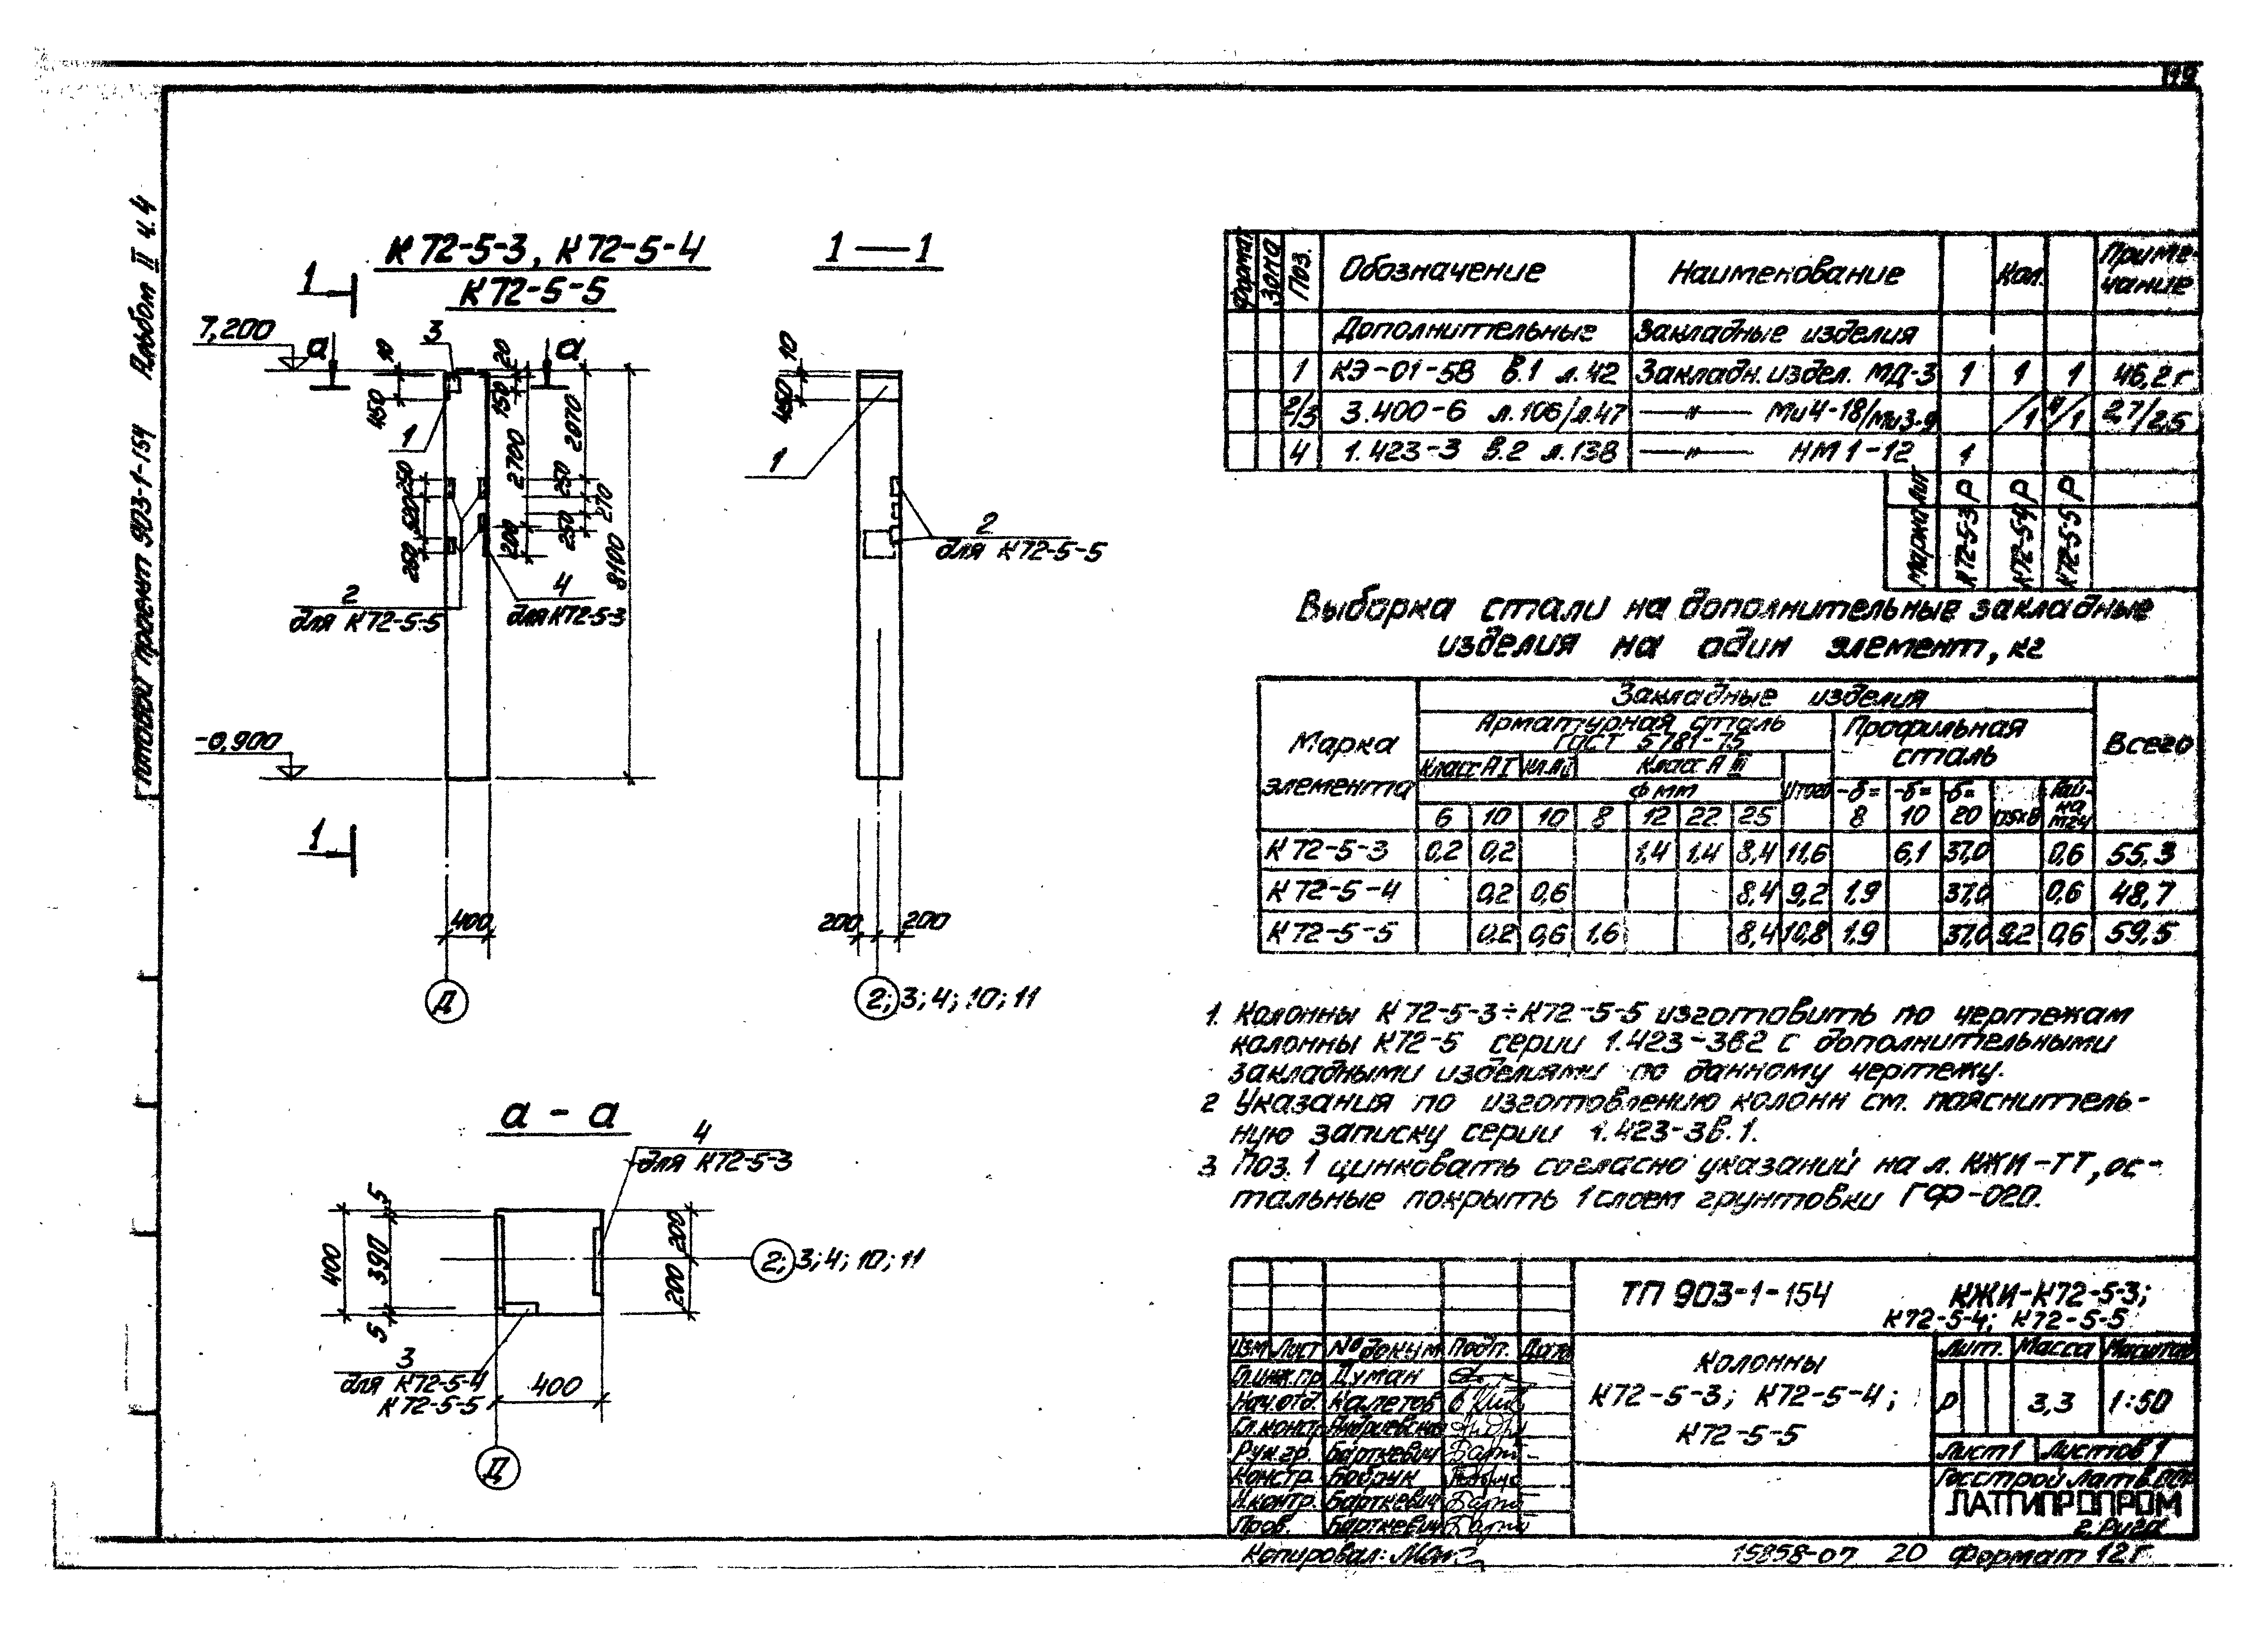 19
Типовой проект 903-1-154 Альбом II ч.4
К72-5-3, К72-5-4
К72-5-5
1 — 1
1
7,200
а
3
а
10
20
450
150
2070
1
2700
250
250
520
270
200
250
260
8100
2
для К72-5-5
4
для К72-5-3
-0,900
1
400
Д
10
450
1
2
для К72-5-5
200
200
2; 3; 4; 10; 11
а - а
4
для К72-5-3
5
390
5
400
200
200
2; 3; 4; 10; 11
3
для К72-5-4
К72-5-5
400
Д
Формат Зона Поз. Обозначение Наименование Кол. Примечание
Дополнительные Закладные изделия
1 КЭ-01-58 в.1 л.42 Закладн. издел. МД-3 1 1 1 46,2 г
2/3 3.400-6 л.106/л.47 —"— Ми4-18/Ми3-9 /1 4/1 2,7/2,5
4 1.423-3 в.2 л.138 —"— НМ1-12 1
Марка Лит К72-5-3 Р К72-5-4 Р К72-5-5 Р
Выборка стали на дополнительные закладные
изделия на один элемент, кг
Марка элемента Закладные изделия Всего
Арматурная сталь
ГОСТ 5781-75
Профильная сталь
Класс АI Кл.АII Класс АIII Итого
Ф мм
6 10 10 8 12 22 25 -δ=8 -δ=10 -δ=20 Гайка М24
К72-5-3 0,2 0,2 1,4 1,4 8,4 11,6 6,1 37,0 0,6 55,3
К72-5-4 0,2 0,6 8,4 9,2 1,9 37,0 0,6 48,7
К72-5-5 0,2 0,6 1,6 8,4 10,8 1,9 37,0 9,2 0,6 59,5
1. Колонны К72-5-3÷К72-5-5 изготовить по чертежам
колонны К72-5 серии 1.423-3в2 с дополнительными
закладными изделиями по данному чертежу.
2 Указания по изготовлению колонн см. пояснитель-
ную записку серии 1.423-3в.1.
3 Поз.1 цинковать согласно указаний на л. КЖИ-ТТ, ос-
тальные покрыть 1 слоем грунтовки ГФ-020.
ТП 903-1-154 КЖИ-К72-5-3;
К72-5-4; К72-5-5
Изм Лист № докум Подп. Дата
Гл.инж.пр Думан
Нач.отд. Калетов
Гл.констр Андриевский
Рук.гр. Барткевич
Констр. Бобрук
Н.контр. Барткевич
Пров. Барткевич
Колонны
К72-5-3; К72-5-4;
К72-5-5
Лит. Масса Масштаб
Р 3,3 1:50
Лист 1 Листов 1
Госстрой Латв.ССР
ЛАТГИПРОПРОМ
г. Рига
Копировал:
15858-07 20 Формат 12г